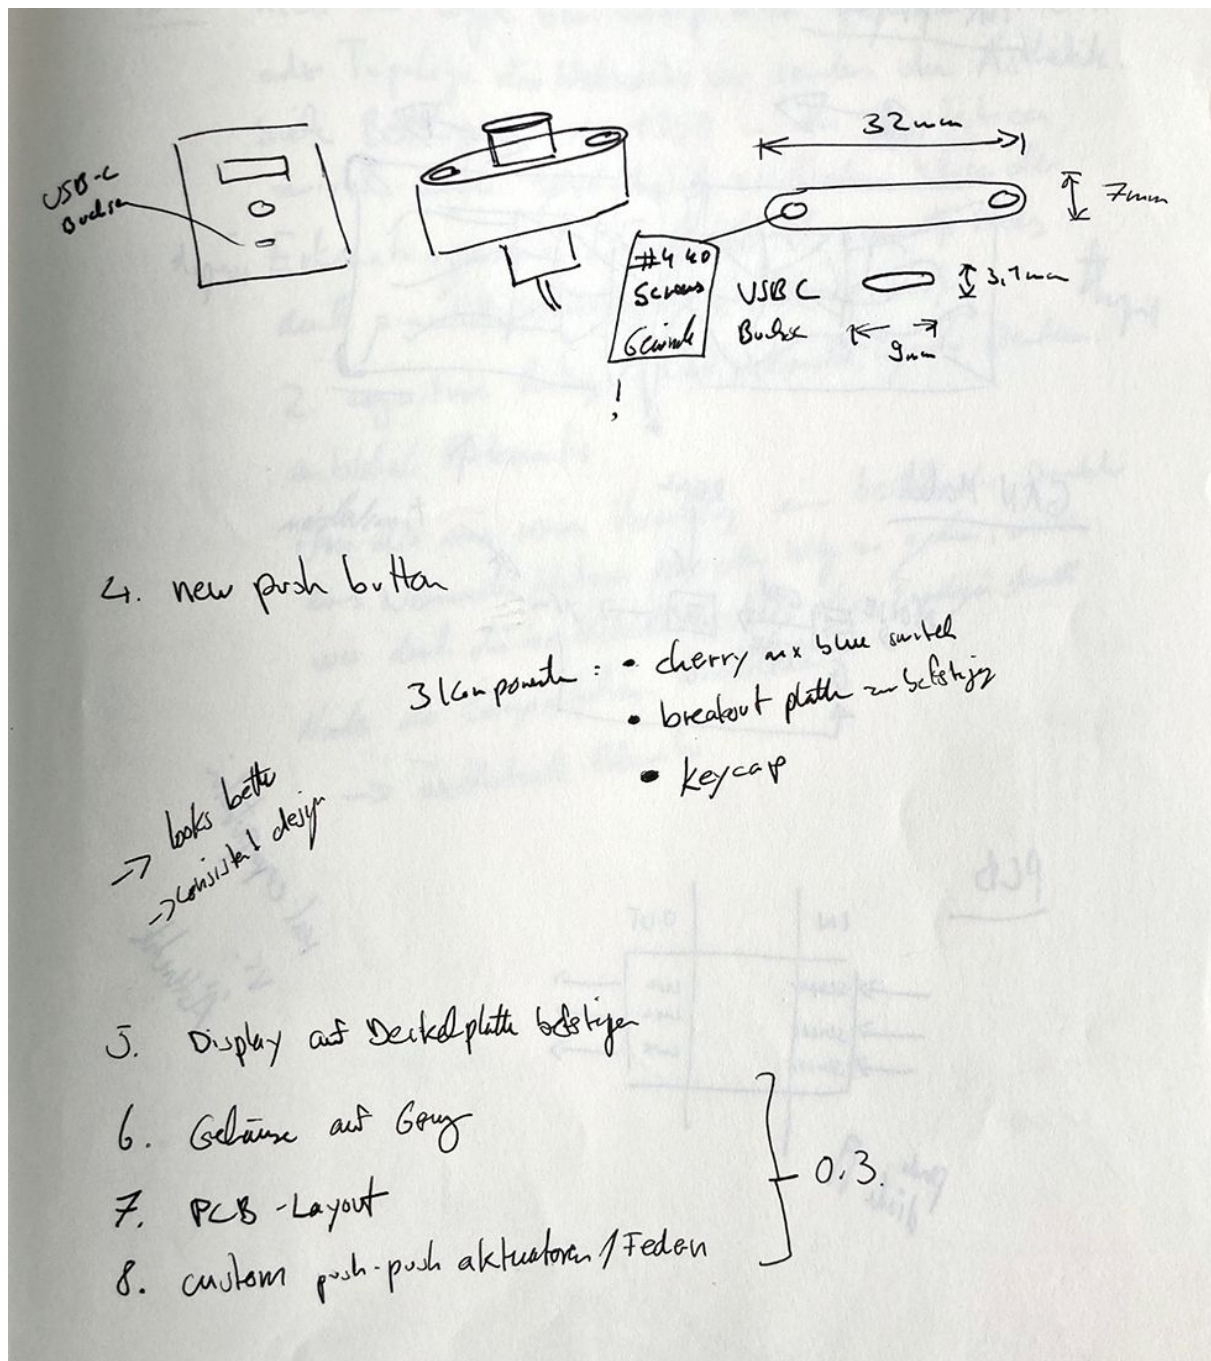 USB-C
Buchse
32mm
7mm
#4 40
Screws
Gewinde
!
USB C
Buchse
3,1mm
9mm
4. new push button
3 Komponenten : • cherry mx blue switch
• breakout platte zur befestigung
• keycap
-> looks better
-> consistent design
5. Display auf Deckelplatte befestigen
6. Gehäuse auf
7. PCB-Layout
8. custom push-push aktuatoren / Federn
0.3.